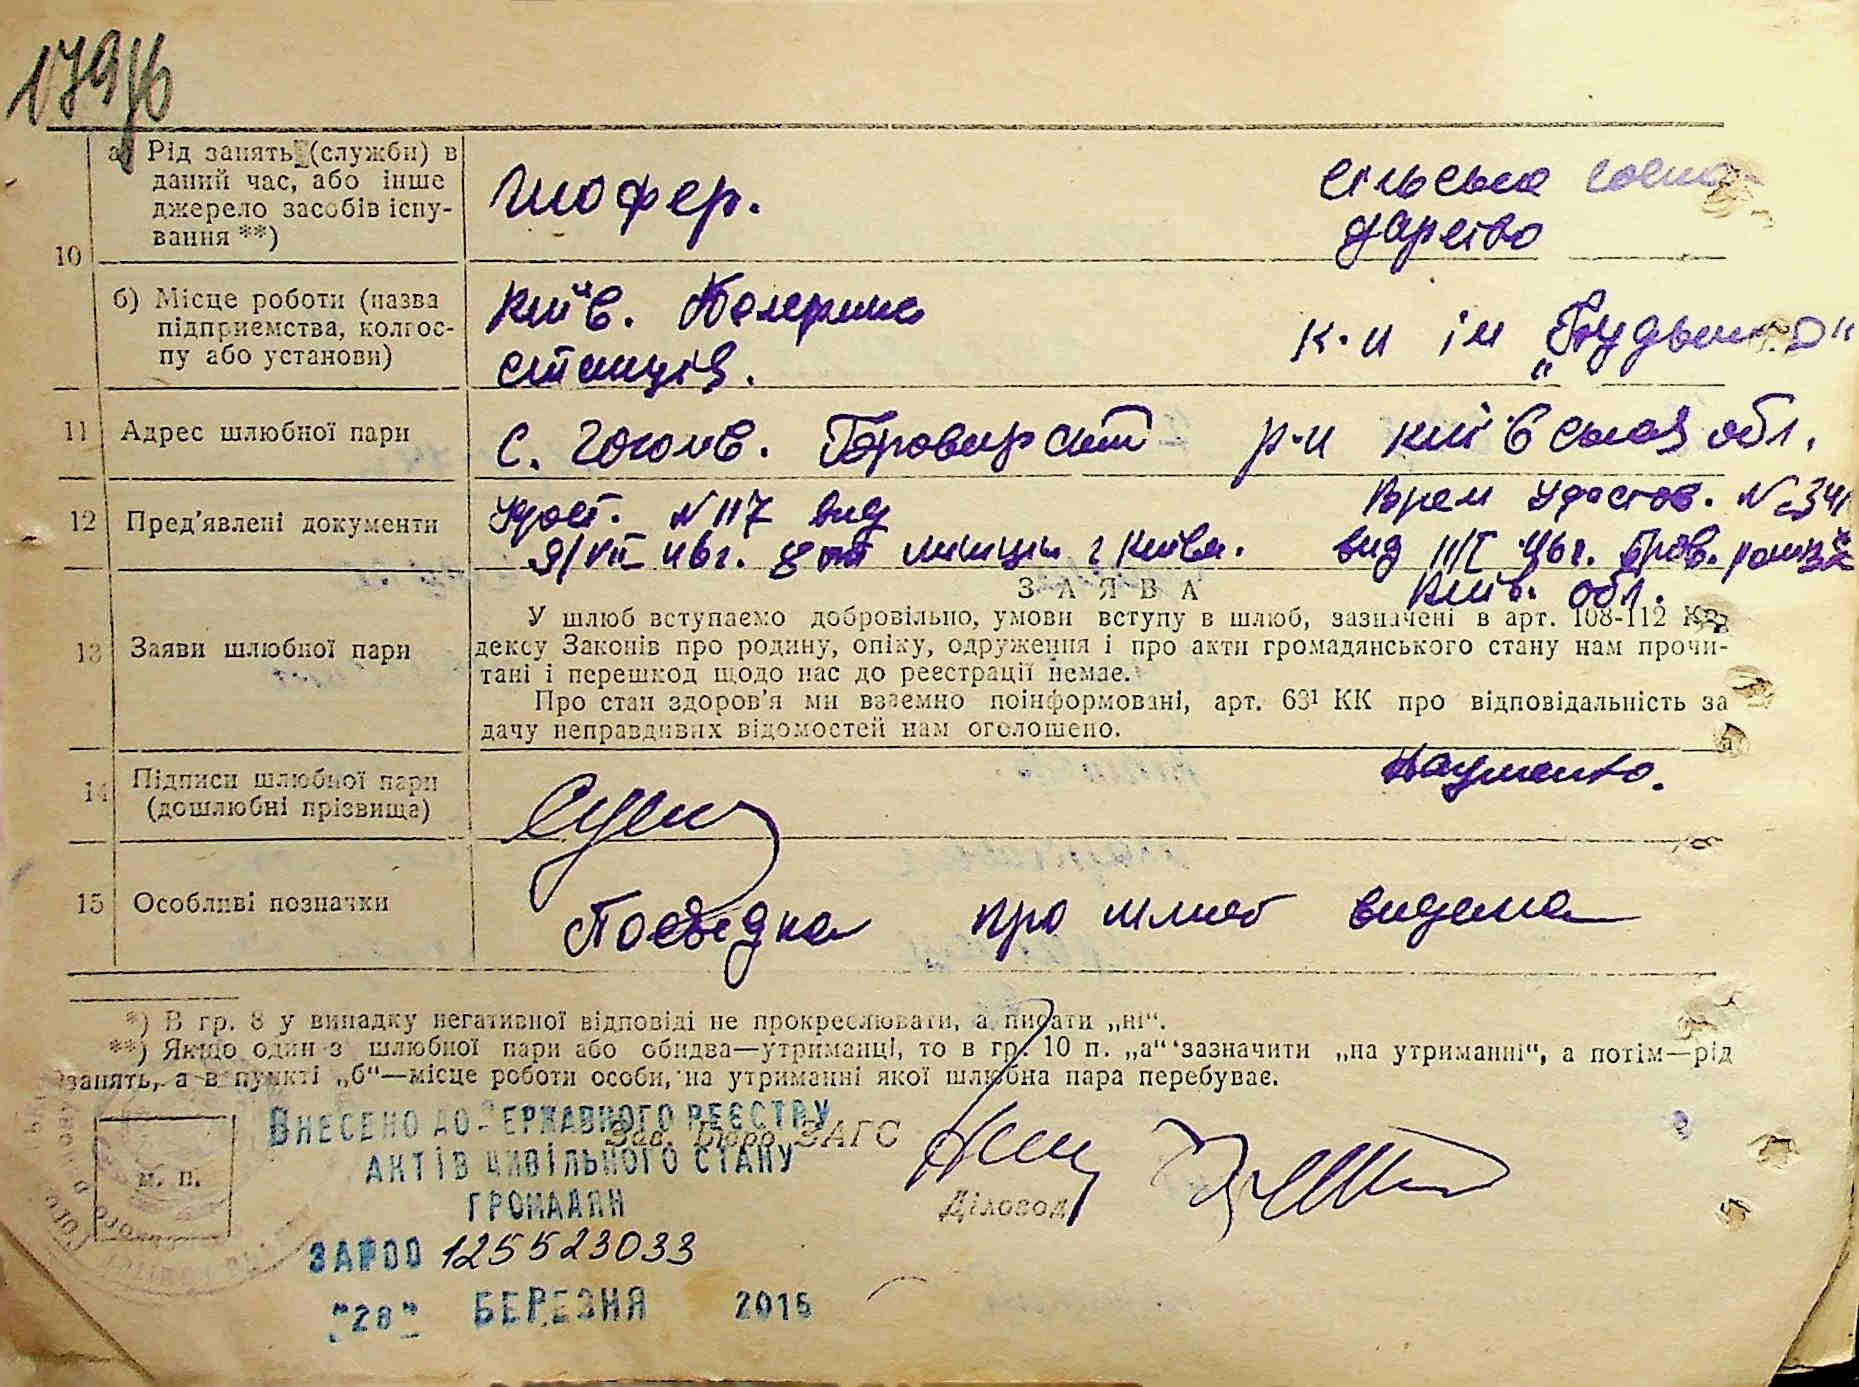 179/6
10
а) Рід занять (службн) в
даний час, або інше
джерело засобів існу-
вання **)
Шофер.
сільська госпо
дарство
б) Місце роботи (назва
підприємства, колгос-
пу або установи)
Київ.
станція.
к-п ім „Будьоного"
11 Адрес шлюбної пари
С. Гоголів. Броварский р-н київськая обл.
12 Пред'явлені документи
Удост. N 117 вид
9/VII 46г. 8 отд милиции г Киева.
Врем Удостов. N 341
вид 11/I 46г. Бров.
Київ. обл.
ЗАЯВА
13 Заяви шлюбної пари
У шлюб вступаємо добровільно, умови вступу в шлюб, зазначені в арт. 108-112 Ко-
дексу Законів про родину, опіку, одруження і про акти громадянського стану нам прочи-
тані і перешкод щодо нас до реєстрації немає.
Про стан здоров'я ми взаємно поінформовані, арт. 63¹ КК про відповідальність за
дачу неправдивих відомостей нам оголошено.
14 Підписи шлюбної пари
(дошлюбні прізвища)
Науменко.
15 Особливі позначки
Посвідка про шлюб видана
*) В гр. 8 у випадку негативної відповіді не прокреслювати, а писати „ні".
**) Якщо один з шлюбної пари або обидва—утриманці, то в гр. 10 п. „а" зазначити „на утриманні", а потім—рід
занять, а в пункті „б"—місце роботи особи, на утриманні якої шлюбна пара перебуває.
м. п.
Зав. Бюро ЗАГС
Діловод
ВНЕСЕНО ДО ДЕРЖАВНОГО РЕЄСТРУ
АКТІВ ЦИВІЛЬНОГО СТАНУ
ГРОМАДЯН
ЗА №00 125523033
"28" БЕРЕЗНЯ 2016